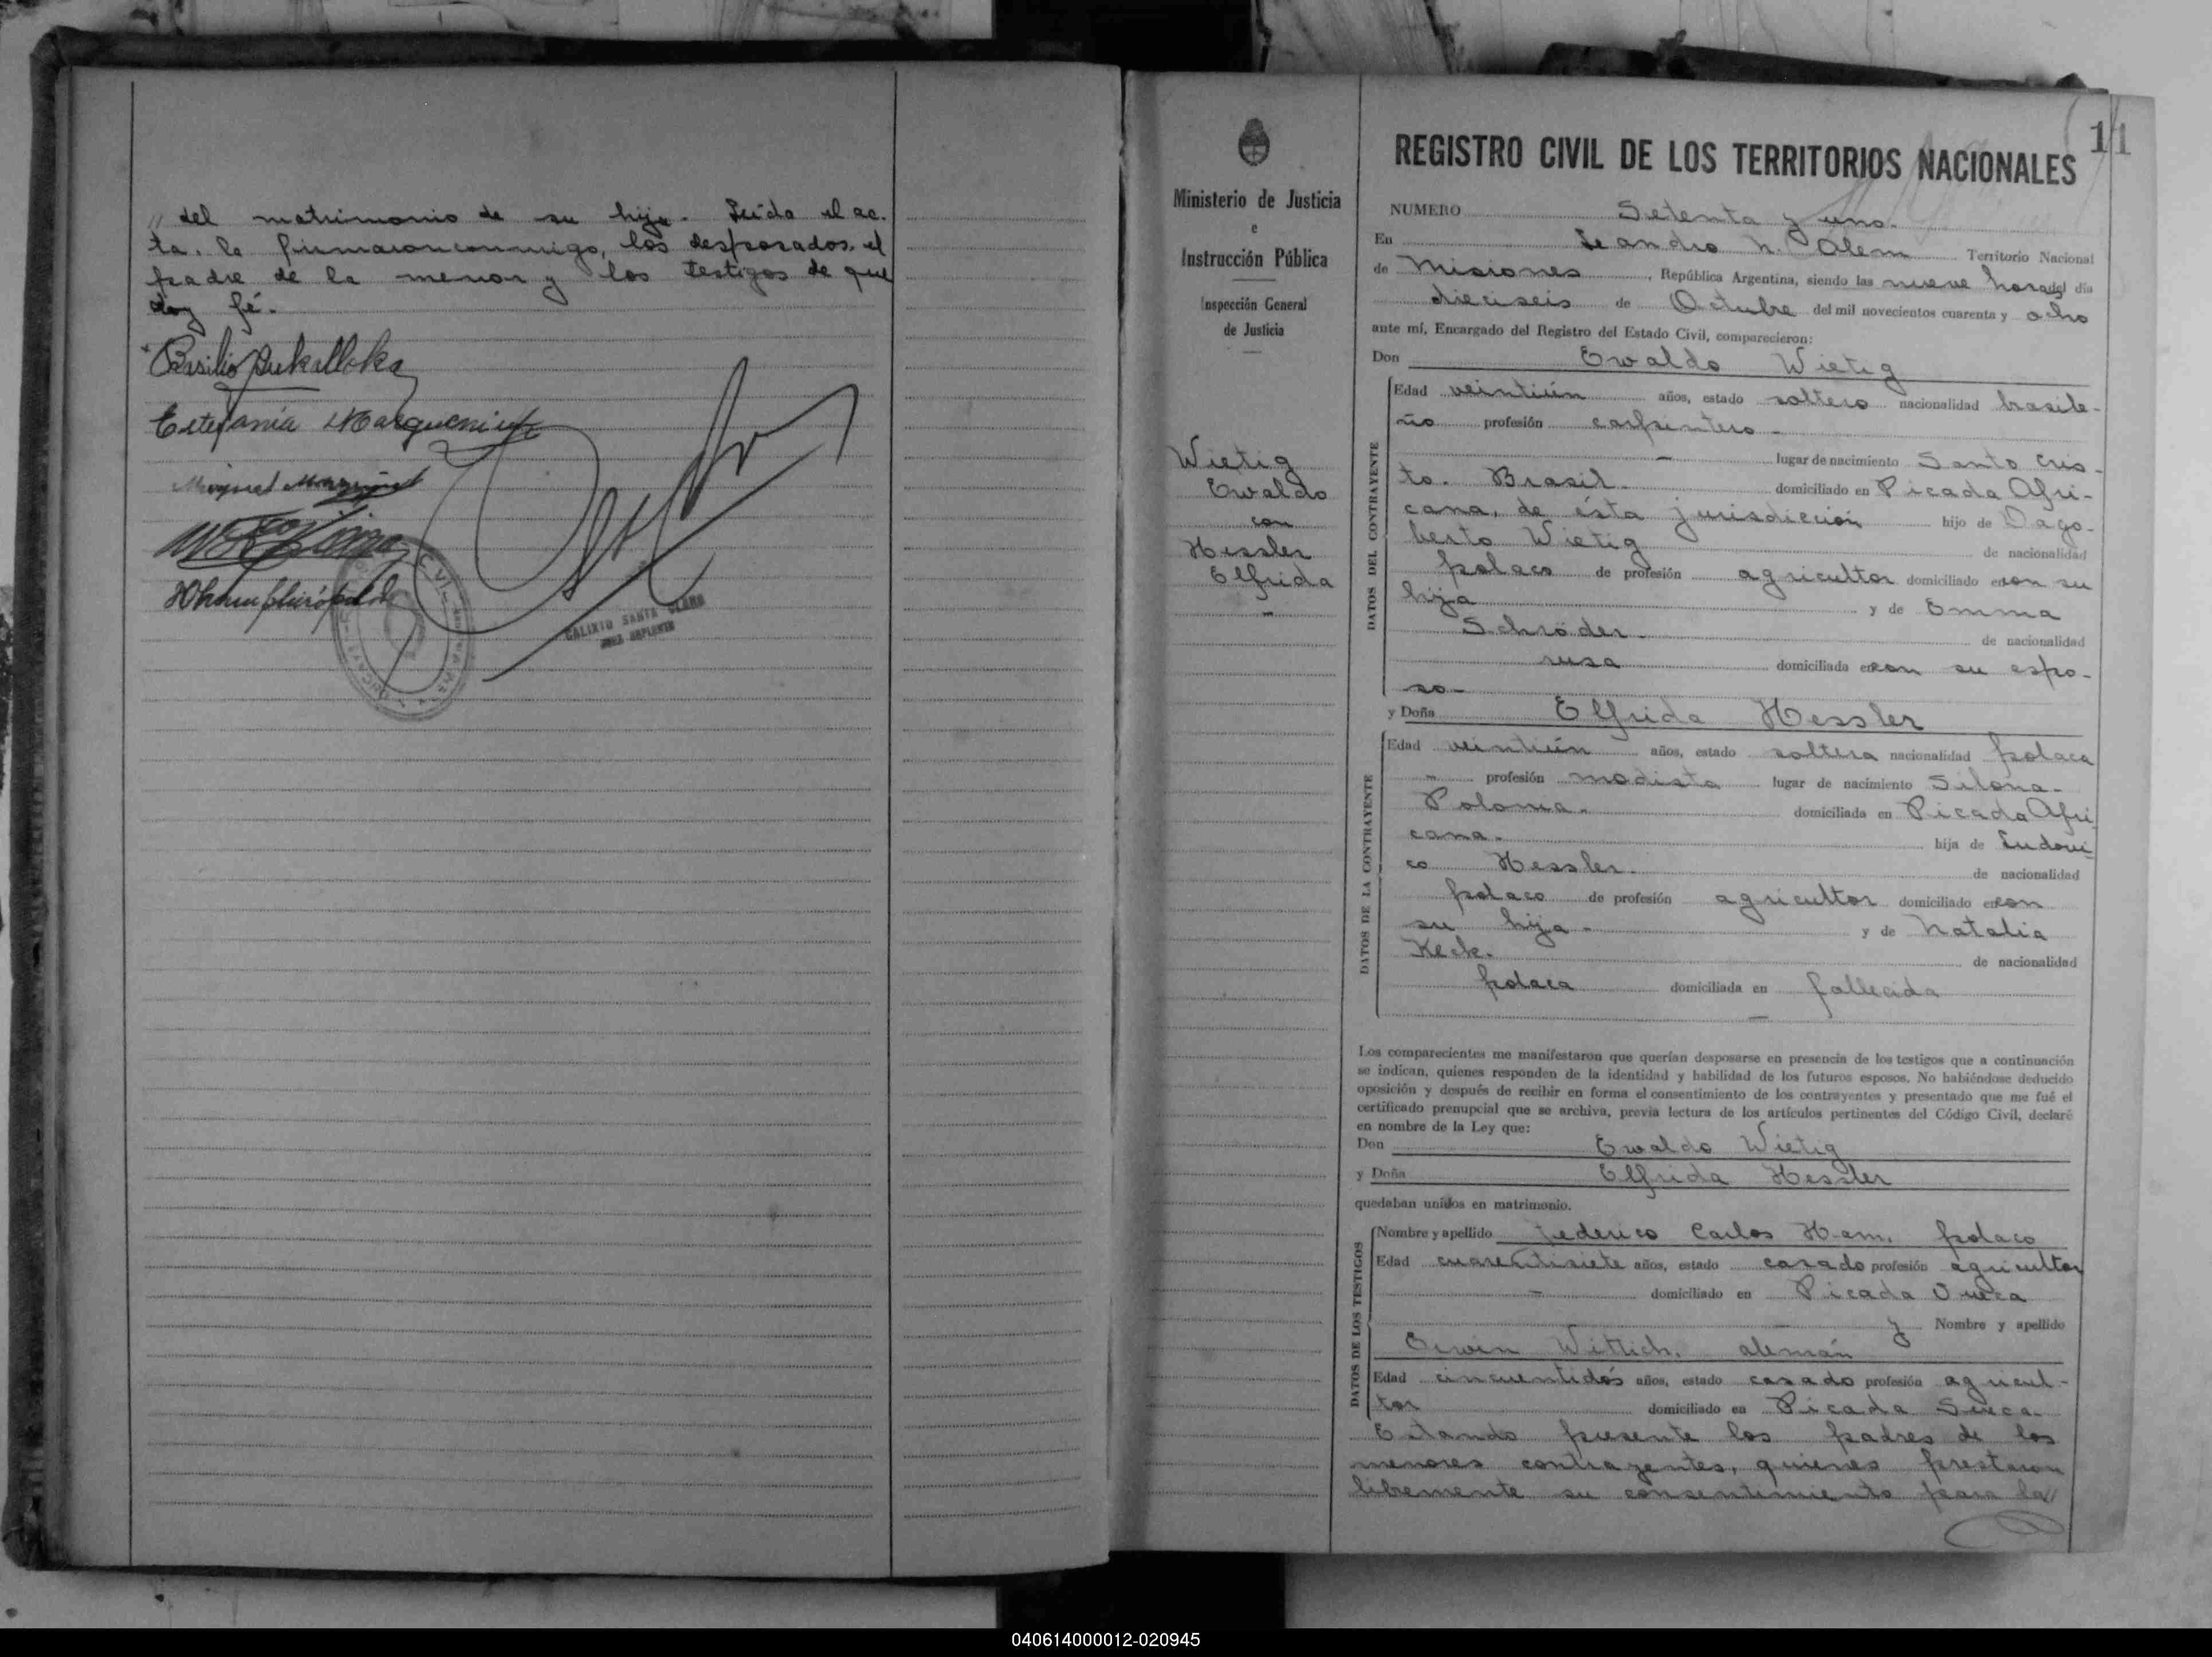 // del matrimonio de su hija. Leída el ac-
ta, la firmaron conmigo, los desposados, el
padre de la menor y los testigos de que
doy fé.
Basilio
Estefanía
Miguel
CALIXTO SANTA CLARA
JUEZ SUPLENTE
11
Ministerio de Justicia
e
Instrucción Pública
Inspección General
de Justicia
Wietig
Ewaldo
con
Hessler
Elfrida
REGISTRO CIVIL DE LOS TERRITORIOS NACIONALES
NUMERO Setenta y uno.
En Leandro N. Alem Territorio Nacional
de Misiones, República Argentina, siendo las nueve horas del día
dieciseis de Octubre del mil novecientos cuarenta y ocho
ante mí, Encargado del Registro del Estado Civil, comparecieron:
Don Ewaldo Wietig
DATOS DEL CONTRAYENTE
Edad veintiún años, estado soltero nacionalidad brasile-
ño profesión carpintero -
- lugar de nacimiento Santo Cris-
to. Brasil. domiciliado en Picada Afri-
cana, de ésta jurisdicción hijo de Dago-
berto Wietig de nacionalidad
polaco de profesión agricultor domiciliado en con su
hija y de Emma
Schröder. de nacionalidad
rusa domiciliada en con su espo-
so-
y Doña Elfrida Hessler
DATOS DE LA CONTRAYENTE
Edad veintiún años, estado soltera nacionalidad polaca
" profesión modista lugar de nacimiento Silona-
Polonia. domiciliada en Picada Afri
cana. hija de Ludovi-
co Hessler. de nacionalidad
polaco de profesión agricultor domiciliado en con
su hija - y de Natalia
Keck. de nacionalidad
polaca domiciliada en fallecida
Los comparecientes me manifestaron que querían desposarse en presencia de los testigos que a continuación
se indican, quienes responden de la identidad y habilidad de los futuros esposos. No habiéndose deducido
oposición y después de recibir en forma el consentimiento de los contrayentes y presentado que me fué el
certificado prenupcial que se archiva, previa lectura de los artículos pertinentes del Código Civil, declaré
en nombre de la Ley que:
Don Ewaldo Wietig
y Doña Elfrida Hessler
quedaban unidos en matrimonio.
DATOS DE LOS TESTIGOS
Nombre y apellido Federico Carlos Ham. polaco
Edad cuarentisiete años, estado casado profesión agricultor
- domiciliado en Picada Sueca
y Nombre y apellido
Erwin Wittich. alemán
Edad cincuentidós años, estado casado profesión agricul-
tor domiciliado en Picada Sueca.
Estando presente los padres de los
menores contrayentes, quienes prestaron
libremente su consentimiento para la//
040614000012-020945